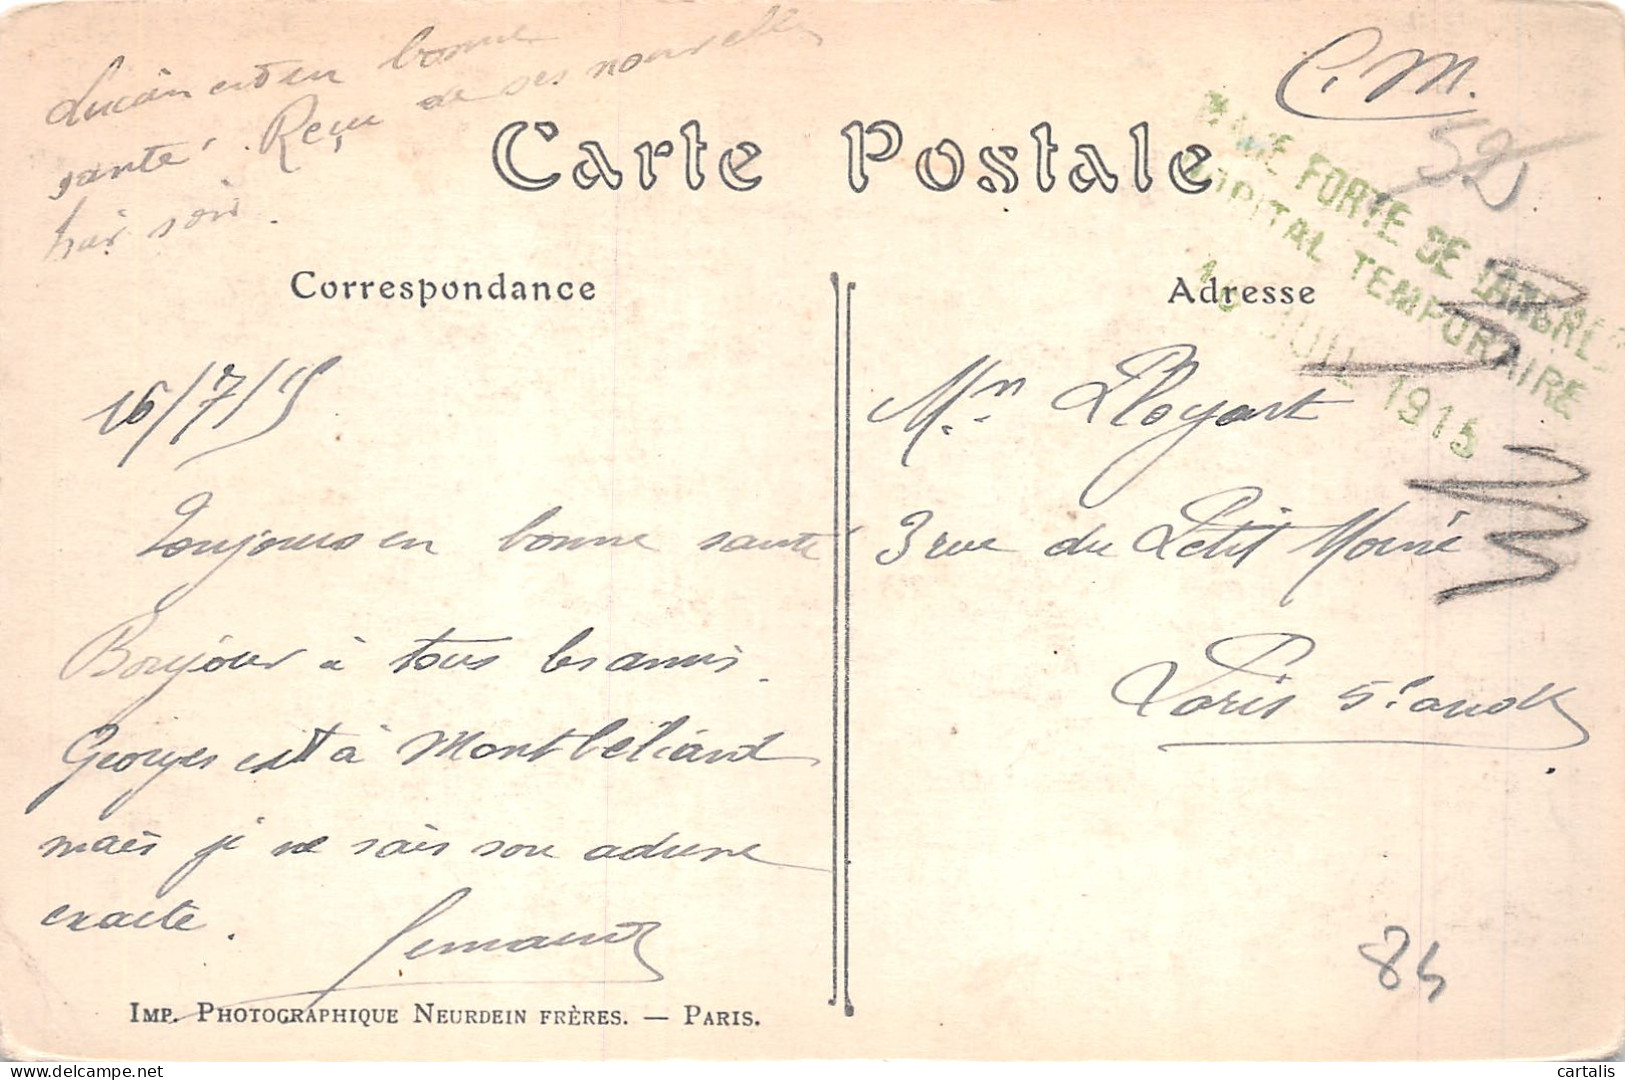 Lucien est en bonne
santé. Reçu de ses nouvelles
hier soir.
C. M.
52
Carte Postale
PLACE FORTE DE LANGRES
HOPITAL TEMPORAIRE
16 JUIL 1915
Correspondance
Adresse
16/7/15
Toujours en bonne santé
Bonjour à tous les amis.
Georges est à Montbéliard
mais je ne sais son adresse
exacte.
Fernand
Mr
3 rue du Petit Moine
Paris 5e arrdt
84
IMP. PHOTOGRAPHIQUE NEURDEIN FRÈRES. — PARIS.
cartalis